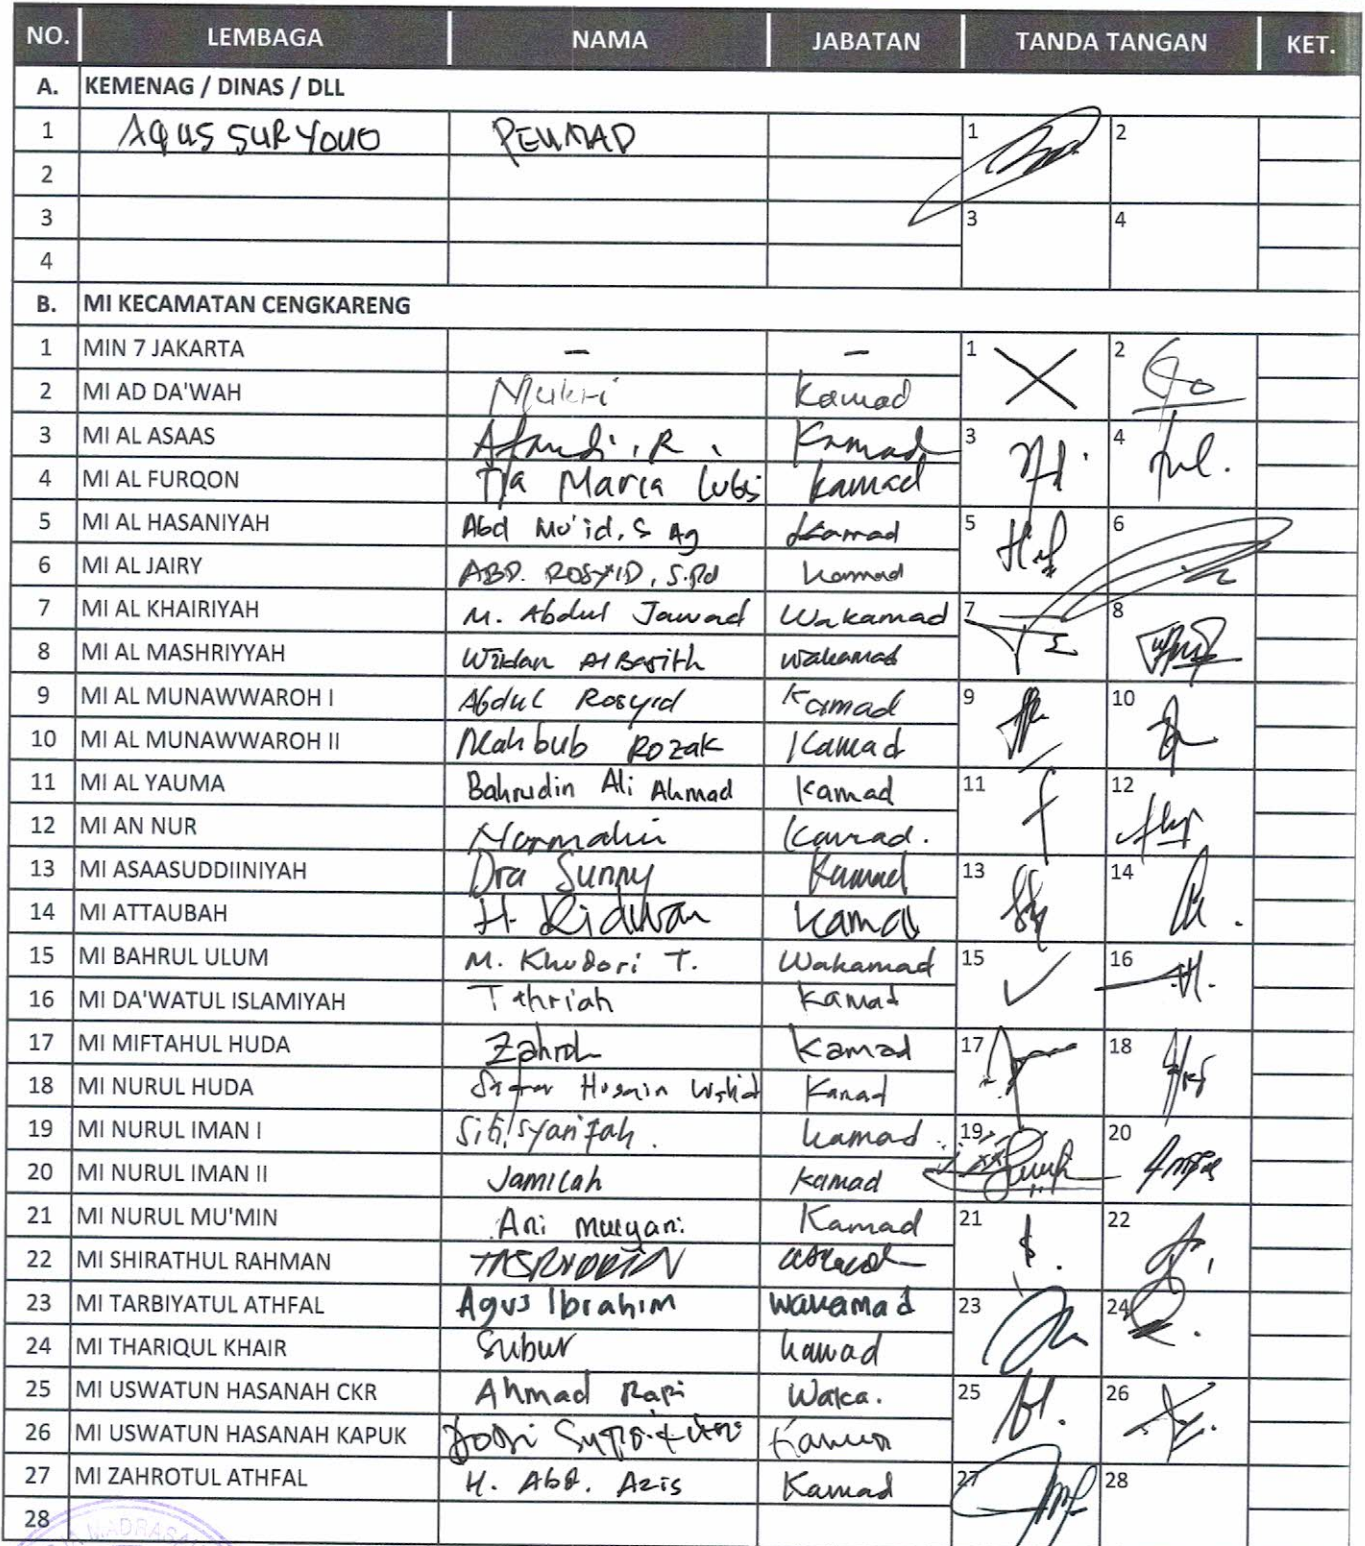 NO. LEMBAGA NAMA JABATAN TANDA TANGAN KET.
A. KEMENAG / DINAS / DLL
1 AGUS SURYONO PENMAD 1 2
2
3 3 4
4
B. MI KECAMATAN CENGKARENG
1 MIN 7 JAKARTA – – 1 2
2 MI AD DA'WAH Mukri Kamad
3 MI AL ASAAS Afandi. R. Kamad 3 4
4 MI AL FURQON Tia Maria Lubis kamad
5 MI AL HASANIYAH Abd Mu'id, S Ag Kamad 5 6
6 MI AL JAIRY ABD. ROSYID, S.Pd kamad
7 MI AL KHAIRIYAH M. Abdul Jawad Wakamad 7 8
8 MI AL MASHRIYYAH Wildan Al Basith wakamad
9 MI AL MUNAWWAROH I Abdul Rosyid Kamad 9 10
10 MI AL MUNAWWAROH II Mahbub ROZAK Kamad
11 MI AL YAUMA Bahrudin Ali Ahmad Kamad 11 12
12 MI AN NUR Kamad.
13 MI ASAASUDDIINIYAH Dra Sunny Kamad 13 14
14 MI ATTAUBAH H. Ridwan Kamad
15 MI BAHRUL ULUM M. Khudori T. Wakamad 15 16
16 MI DA'WATUL ISLAMIYAH Tahriah Kamad
17 MI MIFTAHUL HUDA Zahroh Kamad 17 18
18 MI NURUL HUDA Husain Wahid Kamad
19 MI NURUL IMAN I Siti Syarifah. kamad 19 20
20 MI NURUL IMAN II Jamilah kamad
21 MI NURUL MU'MIN Ani Mulyani. Kamad 21 22
22 MI SHIRATHUL RAHMAN
23 MI TARBIYATUL ATHFAL Agus Ibrahim Wakamad 23 24
24 MI THARIQUL KHAIR Subur kamad
25 MI USWATUN HASANAH CKR Ahmad Rapi Waka. 25 26
26 MI USWATUN HASANAH KAPUK
27 MI ZAHROTUL ATHFAL H. Abd. Azis Kamad 27 28
28
MADRASA